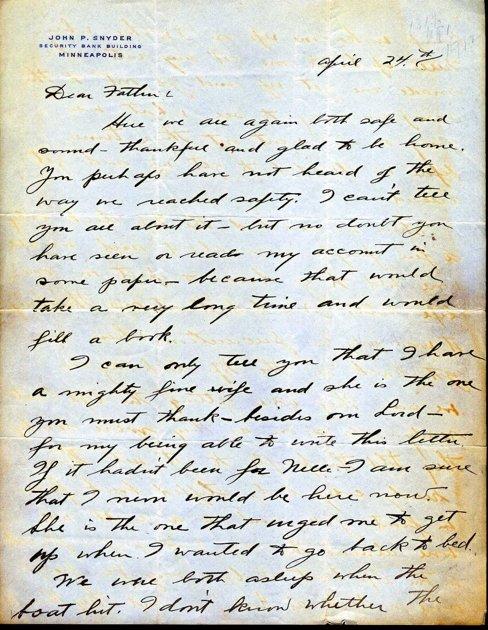 JOHN P. SNYDER
SECURITY BANK BUILDING
MINNEAPOLIS
April 24th
Dear Father:
Here we are again both safe and
sound - thankful and glad to be home.
You perhaps have not heard of the
way we reached safety. I can't tell
you all about it - but no doubt you
have seen or read my account in
some paper - because that would
take a very long time and would
fill a book.
I can only tell you that I have
a mighty fine wife and she is the one
you must thank - besides our Lord -
for my being able to write this letter
If it hadn't been for Nelle I am sure
that I never would be here now.
She is the one that urged me to get
up when I wanted to go back to bed.
We were both asleep when the
boat hit. I don't know whether the